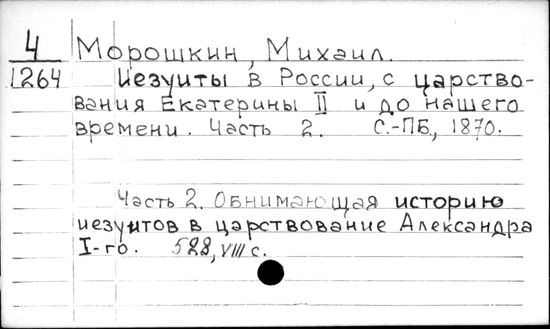 4 Морошкин, Михаил.
1264 Иезуиты в России, с царство-
вания Екатерины II и до нашего
времени. Часть 2. С.-ПБ, 1870.
Часть 2. Обнимающая историю
иезуитов в царствование Александра
I-го. 528, VIII с.